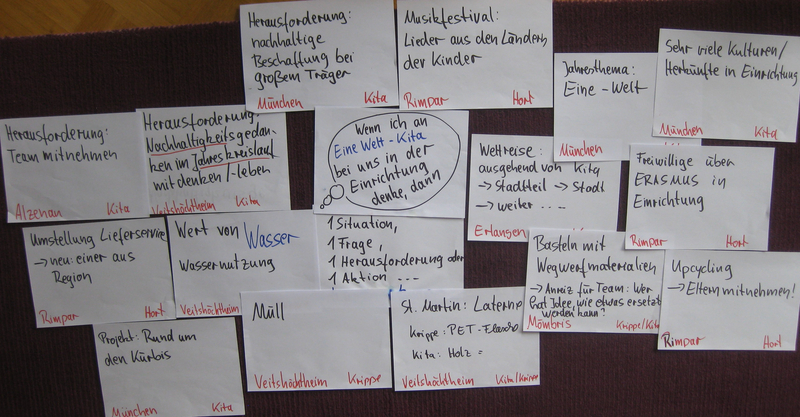 Herausforderung:
nachhaltige
Beschaffung bei
großem Träger
München Kita
Musikfestival:
Lieder aus den Ländern
der Kinder
Rimpar Hort
Jahresthema:
Eine-Welt
München
Sehr viele Kulturen/
Herkünfte in Einrichtung
München Kita
Herausforderung:
Team mitnehmen
Alzenau Kita
Herausforderung,
Nachhaltigkeitsgedan-
ken im Jahreskreislauf
mitdenken/-leben
Veitshöchheim Kita
Wenn ich an
Eine Welt-Kita
bei uns in der
Einrichtung
denke, dann
1 Situation,
1 Frage,
1 Herausforderung oder
1 Aktion ...
Weltreise:
ausgehend von Kita
→ Stadtteil → Stadt
→ weiter ....
Erlangen
Freiwillige über
ERASMUS in
Einrichtung
Rimpar Hort
Umstellung Lieferservice
→ neu: einer aus
Region
Rimpar Hort
Wert von Wasser
Wassernutzung
Veitshöchheim Kita
Basteln mit
Wegwerfmaterialien
→ Anreiz für Team: Wer
hat Idee, wie etwas ersetzt
werden kann?
Mömbris Krippe/Kita
Upcycling
→ Eltern mitnehmen!
Rimpar Hort
Projekt: Rund um
den Kürbis
München Kita
Müll
Veitshöchheim Krippe
St. Martin: Laterne
Krippe: PET-Flasche
Kita: Holz =
Veitshöchheim Kita/Krippe